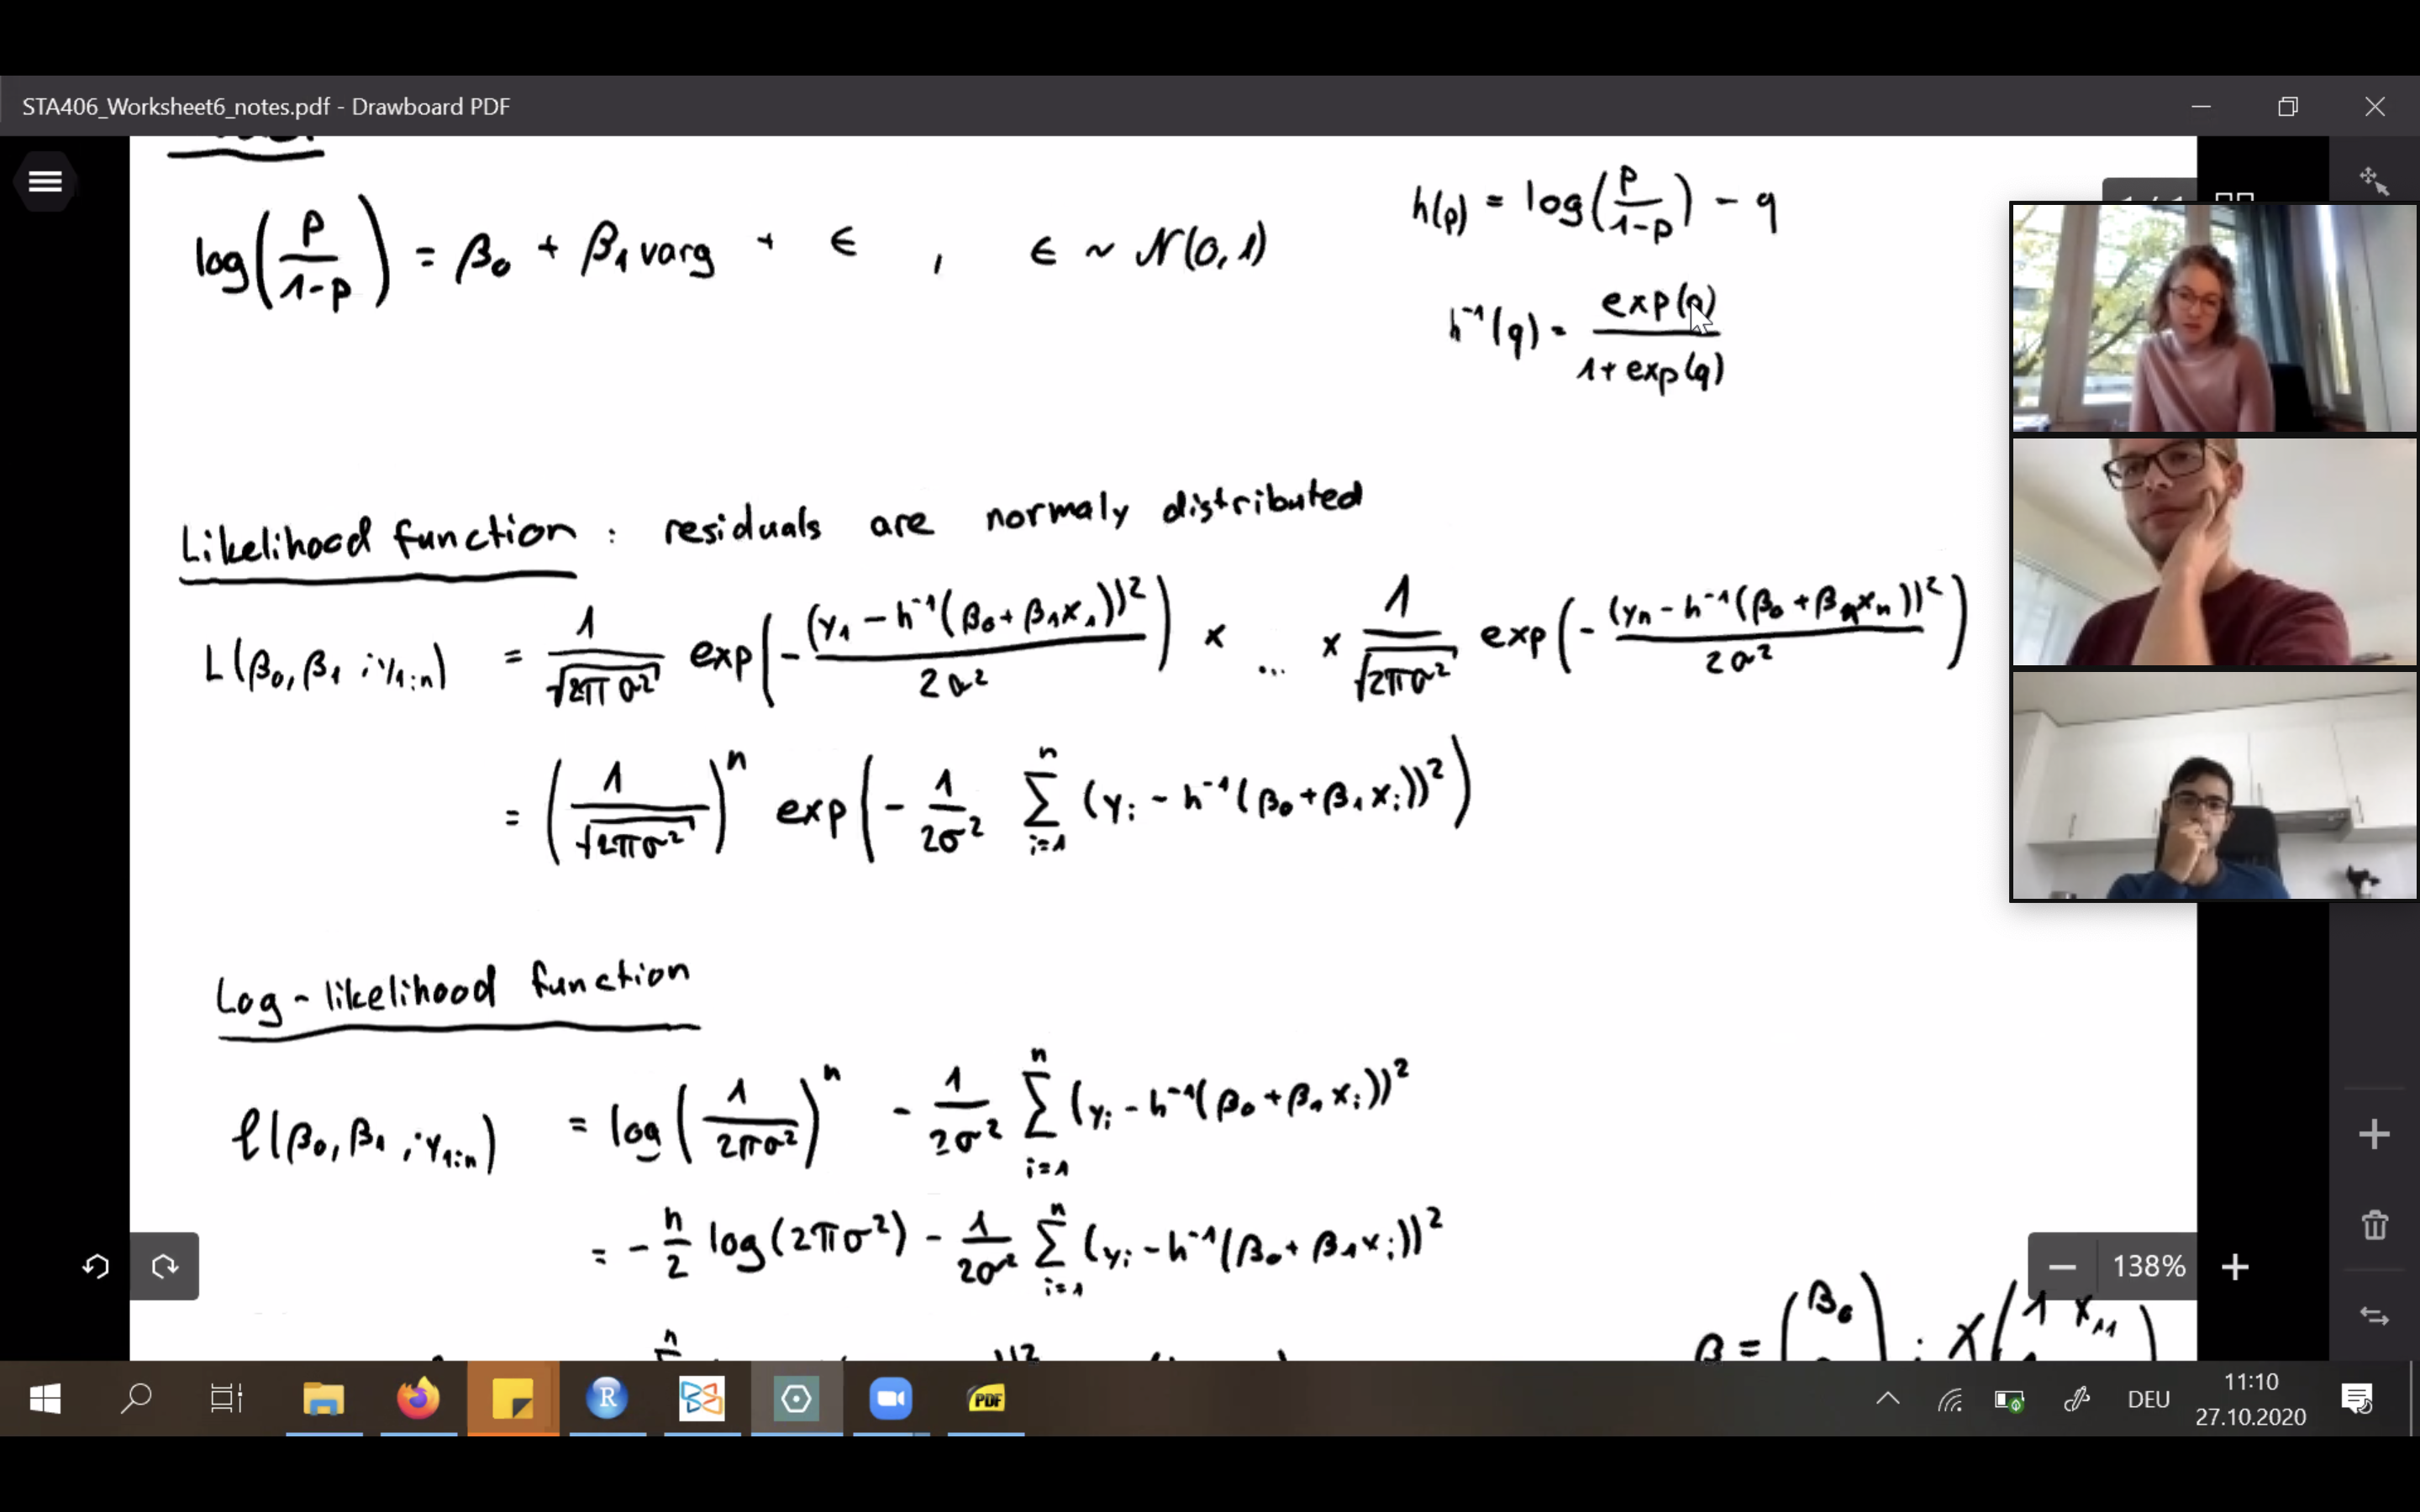 STA406_Worksheet6_notes.pdf - Drawboard PDF
log(p/1-p) = β₀ + β₁ varg + ϵ , ϵ ~ N(0,1)
h(p) = log(p/1-p) - q
h⁻¹(q) = exp(q)/1+exp(q)
Likelihood function : residuals are normaly distributed
L(β₀, β₁ ; y₁:n) = 1/√2πσ² exp(-(y₁ - h⁻¹(β₀ + β₁x₁))²/2σ²) x ... x 1/√2πσ² exp(-(yn - h⁻¹(β₀ + β₁xn))²/2σ²)
= (1/√2πσ²)ⁿ exp(- 1/2σ² Σ i=1 n (yi - h⁻¹(β₀ + β₁xi))²)
Log-likelihood function
ℓ(β₀, β₁ ; y₁:n) = log(1/2πσ²)ⁿ - 1/2σ² Σ i=1 n (yi - h⁻¹(β₀ + β₁xi))²
= - n/2 log(2πσ²) - 1/2σ² Σ i=1 n (yi - h⁻¹(β₀ + β₁xi))²
138%
β = (β₀ ; X (1 x₁₁
n
R
PDF
DEU
11:10
27.10.2020